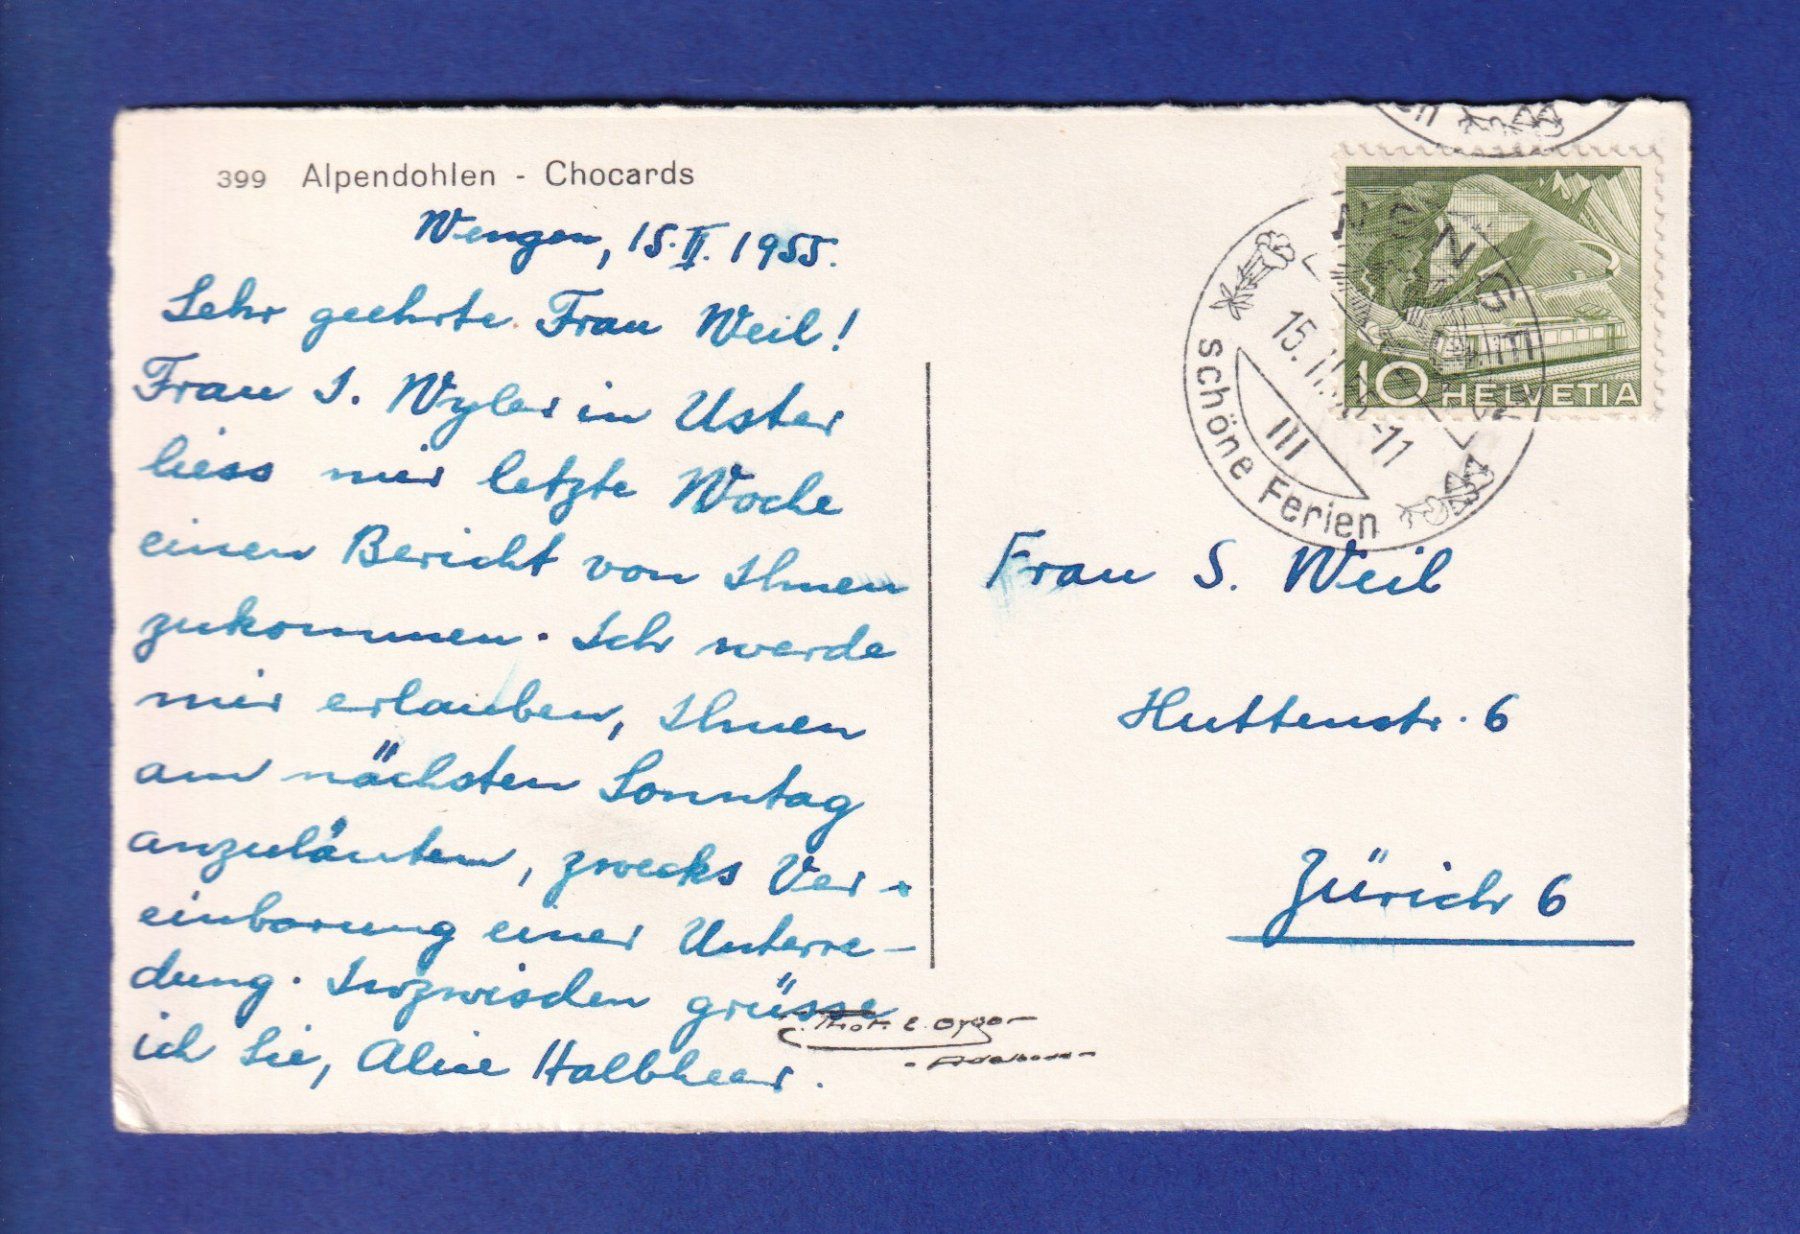 399 Alpendohlen - Chocards
Wengen, 15.II.1955.
Sehr geehrte Frau Weil!
Frau S. Wyler in Uster
liess mir letzte Woche
einen Bericht von Ihnen
zukommen. Ich werde
mir erlauben, Ihnen
am nächsten Sonntag
anzuläuten, zwecks Ver-
einbarung einer Unterre-
dung. Inzwischen grüsse
ich Sie, Alice Halbheer.
Phot. E. Gyger
- Adelboden -
WENGEN
15.II.55-11
III
Schöne Ferien
10 HELVETIA
Frau S. Weil
Huttenstr. 6
Zürich 6